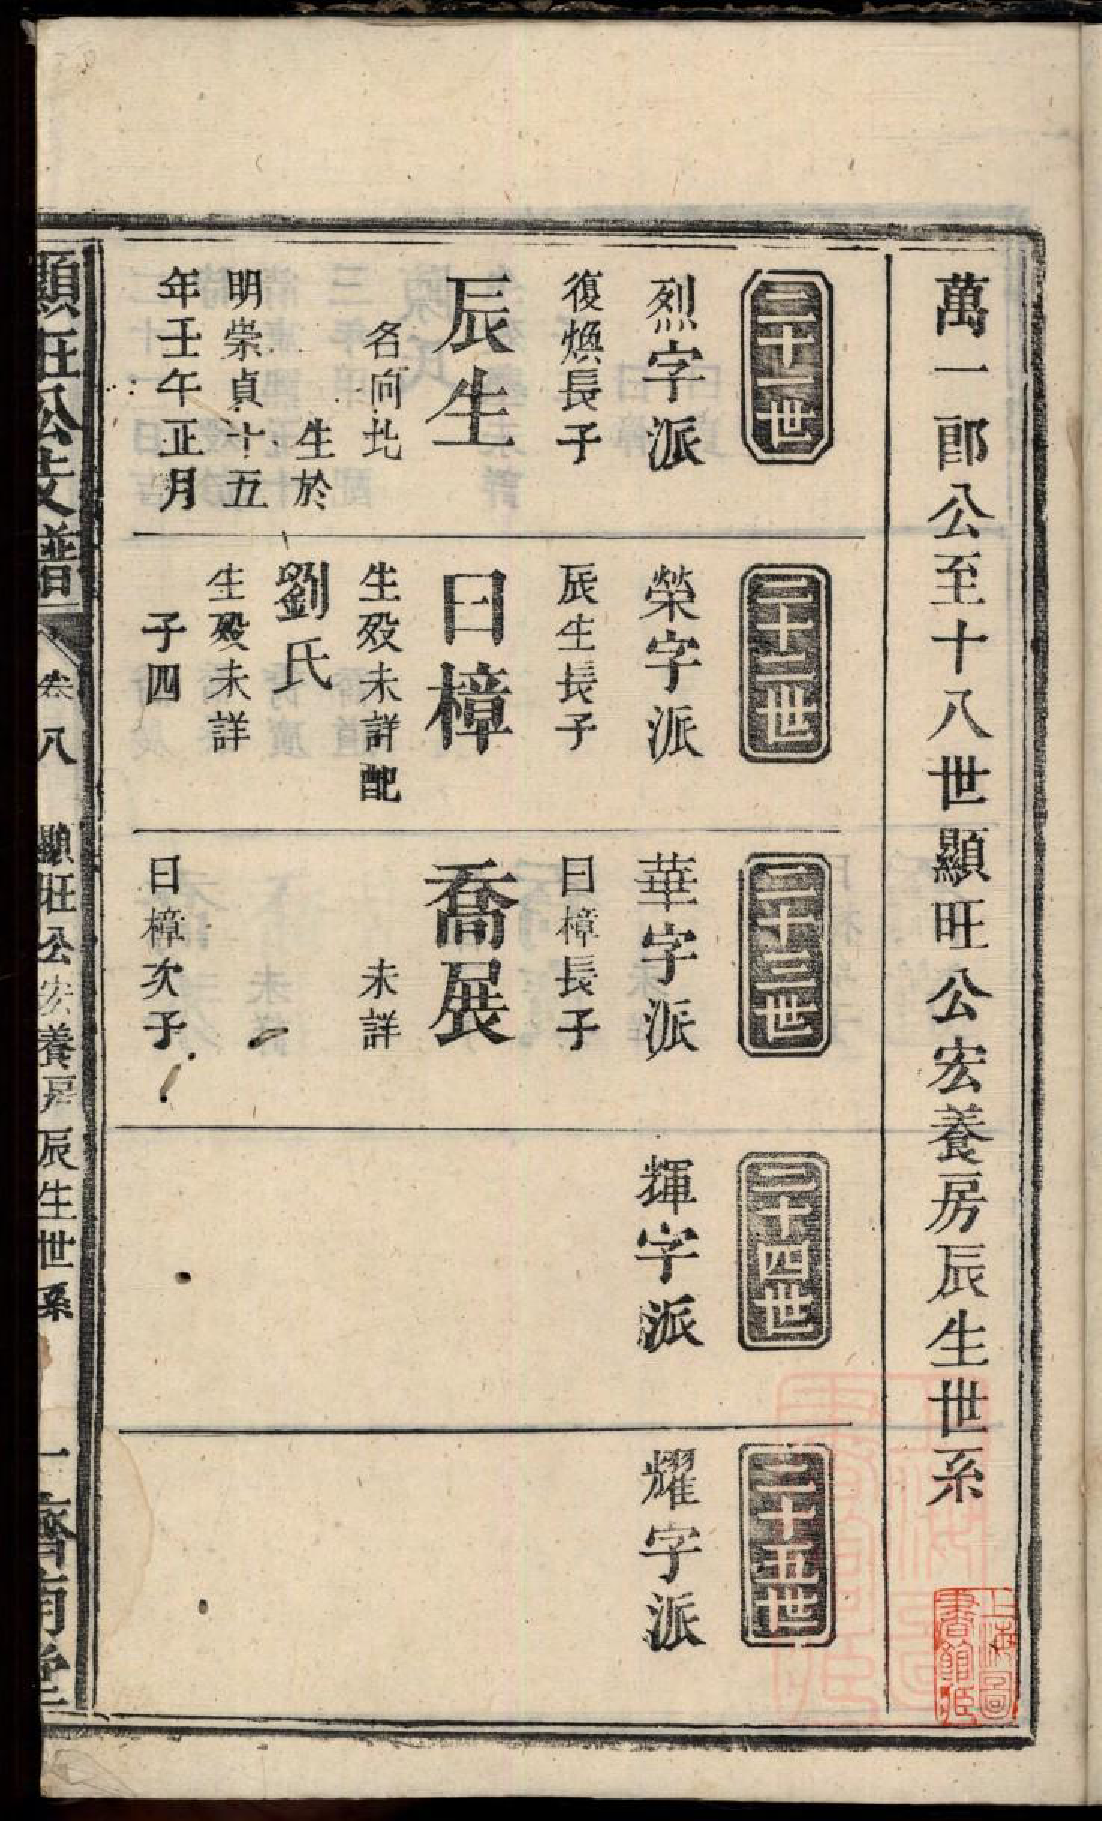 萬一郎公至十八世顯旺公宏養房辰生世系
二十一世
烈字派
復煥長子
辰生
名向北
生於
明崇貞十五
年壬午正月
二十二世
榮字派
辰生長子
曰樟
生殁未詳配
劉氏
生殁未詳
子四
二十三世
華字派
曰樟長子
喬展
未詳
曰樟次子
二十四世
輝字派
二十五世
耀字派
顯旺公支譜
卷八
顯旺公宏養房辰生世系
一
濟南堂
上海圖
書館藏